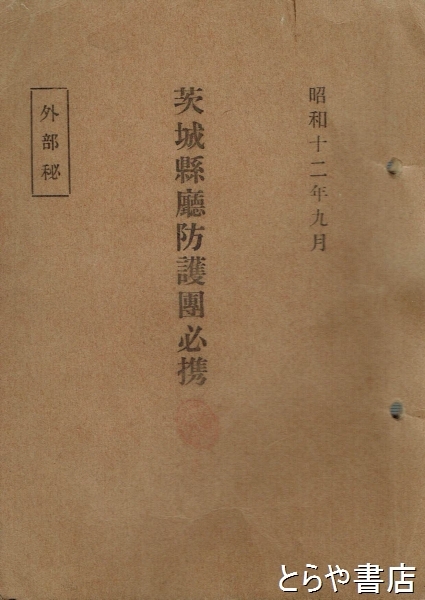 昭和十二年九月
茨城縣廳防護團必携
外部秘
とらや書店